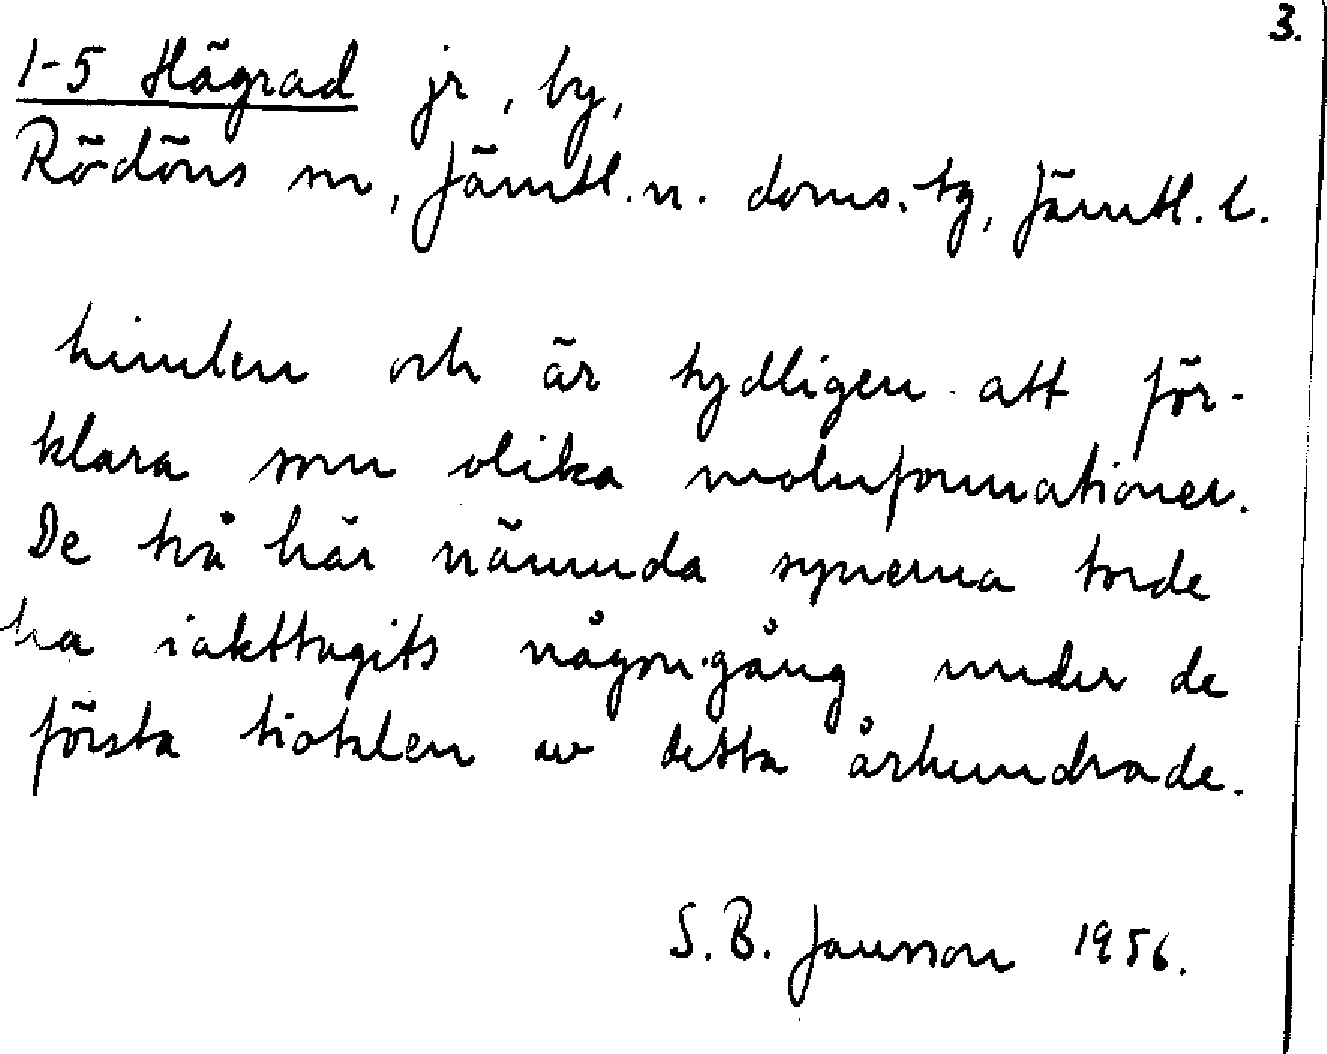 3.
1-5 Hägrad jr, by,
Rödöns sn, Jämtl. n. doms. tg, Jämtl. l.
himlen och är tydligen att för-
klara som olika molnformationer.
De två här nämnda synerna torde
ha iakttagits någon gång under de
första tiotalen av detta århundrade.
S. B. Jansson 1956.